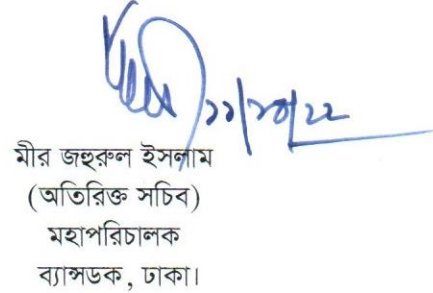 ১১/১০/২২
মীর জহুরুল ইসলাম
(অতিরিক্ত সচিব)
মহাপরিচালক
ব্যান্সডক, ঢাকা।